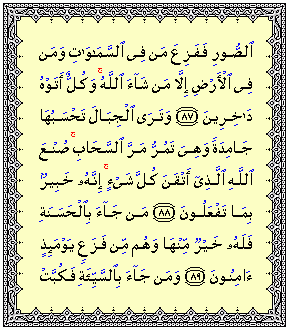 ٱلصُّورِ فَفَزِعَ مَن فِى ٱلسَّمَٰوَٰتِ وَمَن
فِى ٱلْأَرْضِ إِلَّا مَن شَآءَ ٱللَّهُ ۚ وَكُلٌّ أَتَوْهُ
دَٰخِرِينَ ﴿٨٧﴾ وَتَرَى ٱلْجِبَالَ تَحْسَبُهَا
جَامِدَةً وَهِىَ تَمُرُّ مَرَّ ٱلسَّحَابِ ۚ صُنْعَ
ٱللَّهِ ٱلَّذِىٓ أَتْقَنَ كُلَّ شَىْءٍ ۚ إِنَّهُۥ خَبِيرٌۢ
بِمَا تَفْعَلُونَ ﴿٨٨﴾ مَن جَآءَ بِٱلْحَسَنَةِ
فَلَهُۥ خَيْرٌ مِّنْهَا وَهُم مِّن فَزَعٍ يَوْمَئِذٍ
ءَامِنُونَ ﴿٨٩﴾ وَمَن جَآءَ بِٱلسَّيِّئَةِ فَكُبَّتْ